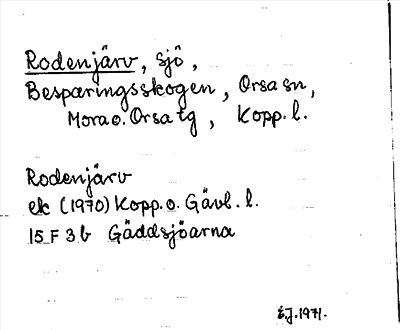 Rodenjärv, sjö,
Besparingsskogen, Orsa sn,
Mora o. Orsa tg, Kopp. l.
Rodenjärv
ek (1970) Kopp. o. Gävl. l.
15 F 3 b Gäddsjöarna
E.J. 1971.